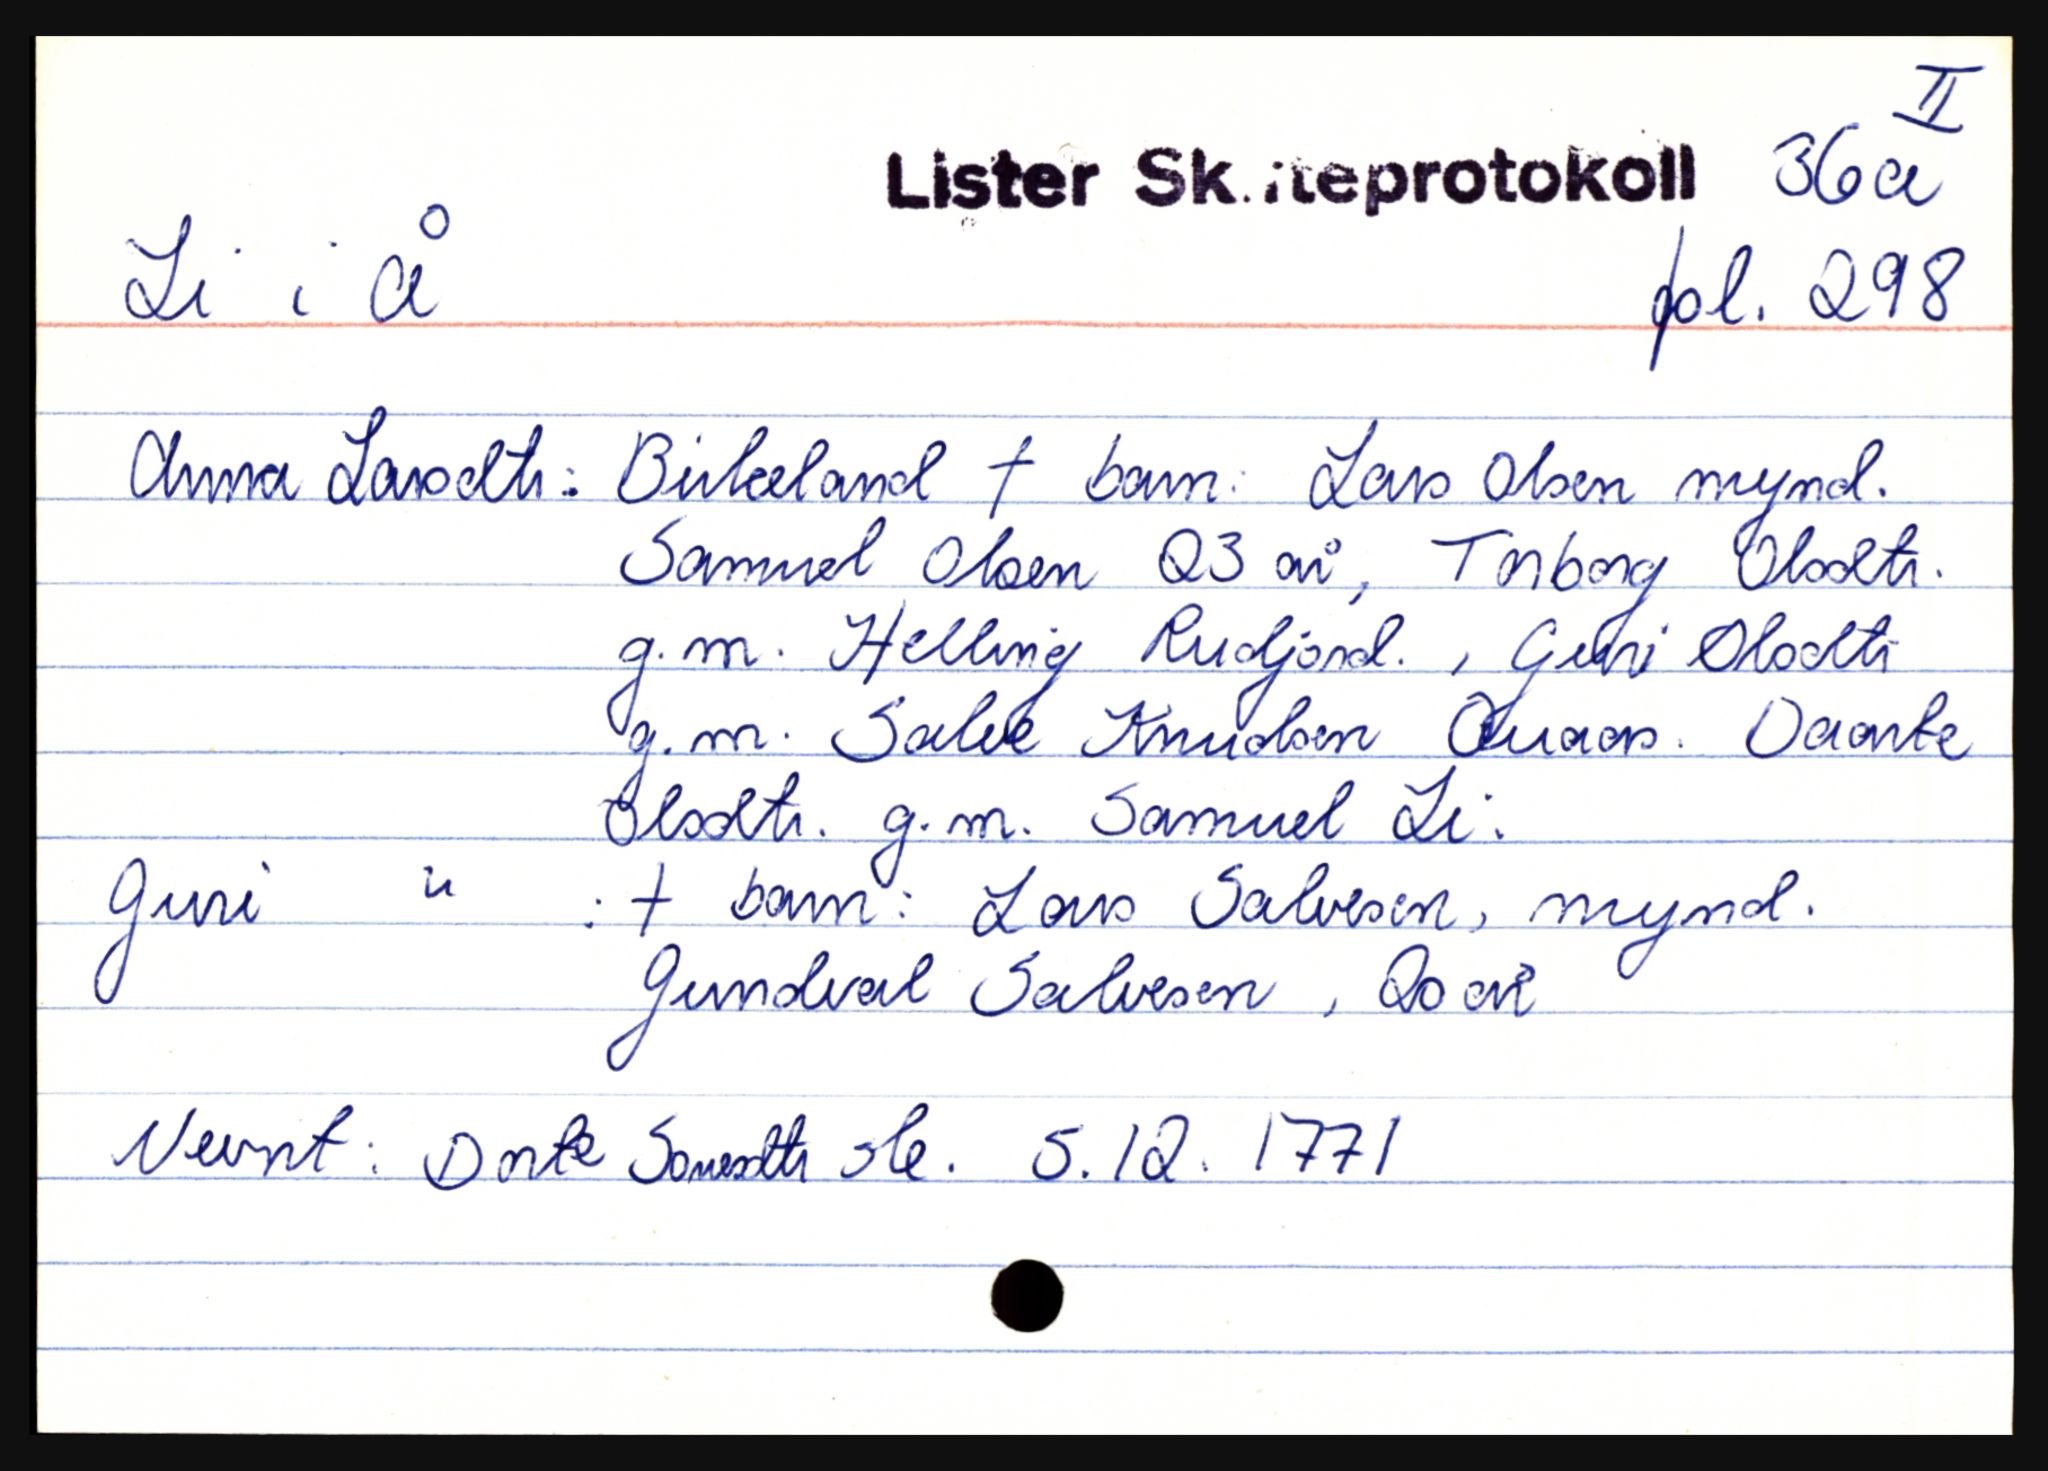 II
Lister Skifteprotokoll 36a
Li i Å fol. 298
Anna Larsdtr: Birkeland † barn: Lars Olsen mynd.
Samuel Olsen 23 år, Torborg Olsdtr.
g.m. Helling Rudjord., Guri Olsdtr
g.m. Salve Knudsen Aaas. Daarte
Olsdtr. g.m. Samuel Li.
Guri " : † barn: Lars Salvesen, mynd.
Gundval Salvesen, 20 år
Nevnt: Dorte sk. 5.12.1771